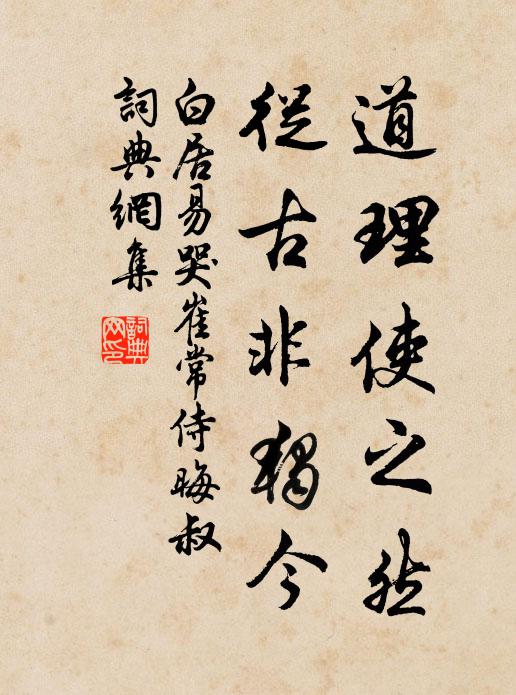 道理使之然
從古非獨今
白居易哭崔常侍晦叔
詞典網集
詞典
网印